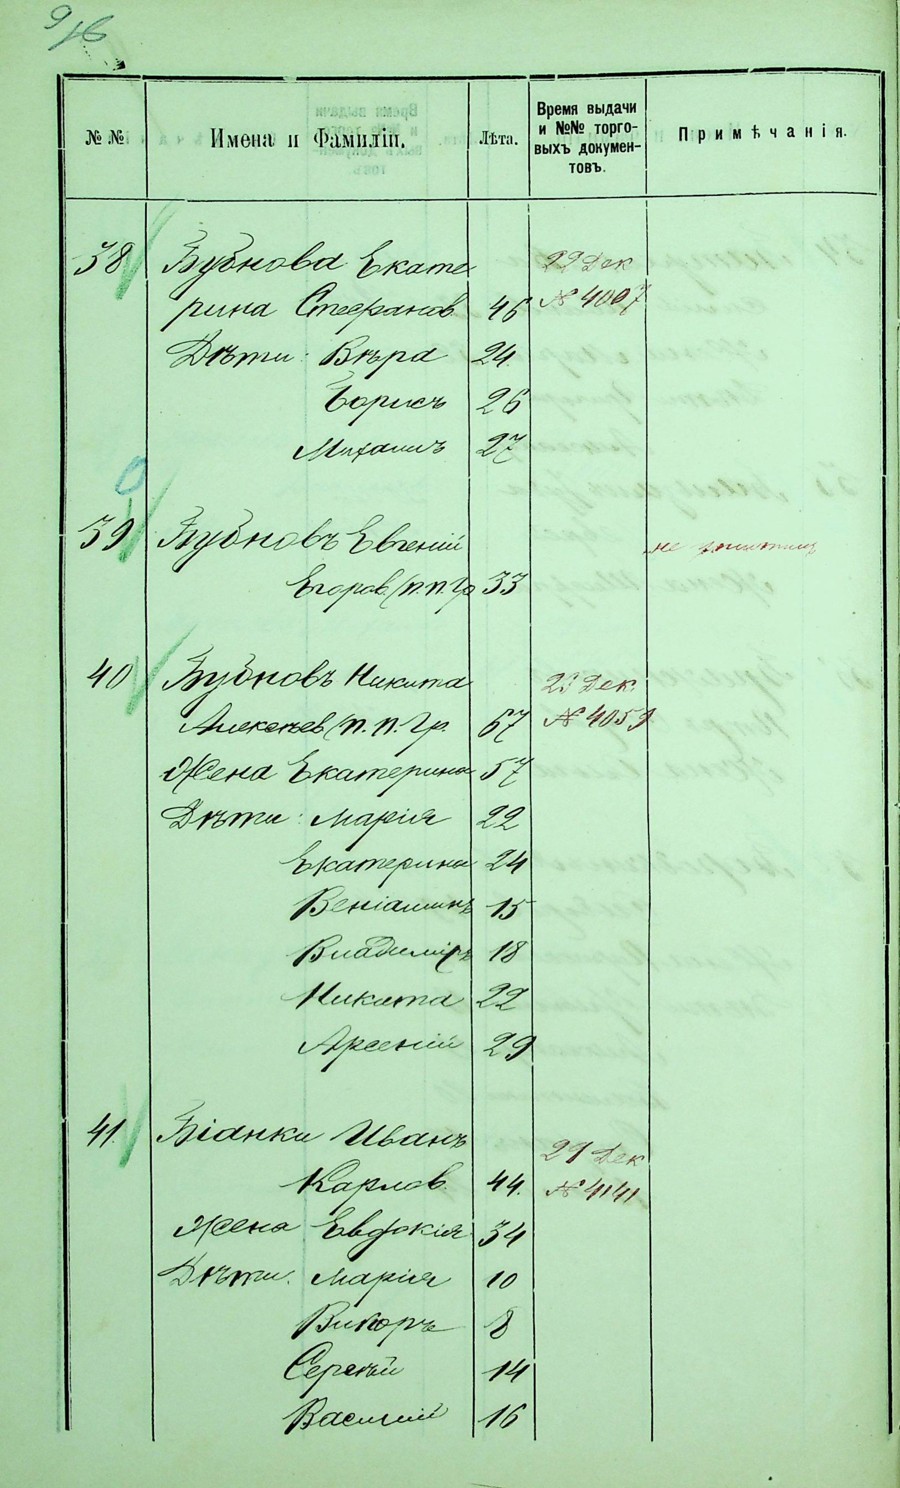 №№
Имена и Фамиліи.
Лѣта.
Время выдачи
и №№ торго-
выхъ докумен-
товъ.
Примѣчанія.
38 Бубнова Екате 22 Дек
рина Стефанов 46 № 4007
Дѣти: Вѣра 24
Борисъ 26
Михаилъ 27
39 Бубновъ Евгеній
Егоров. (п. п. гр 33
40 Бубновъ Никита 23 Дек.
Алексѣев (п. п. гр. 67 № 4059
Жена Екатерина 57
Дѣти: Марія 22
Екатерина 24
Веніаминъ 15
Владиміръ 18
Никита 22
Арсеній 29
41. Біанки Иванъ 29 Дек
Карлов. 44. № 4141
Жена Евдокія 34
Дѣти. Марія 10
Викторъ 8
Сергѣй 14
Василій 16